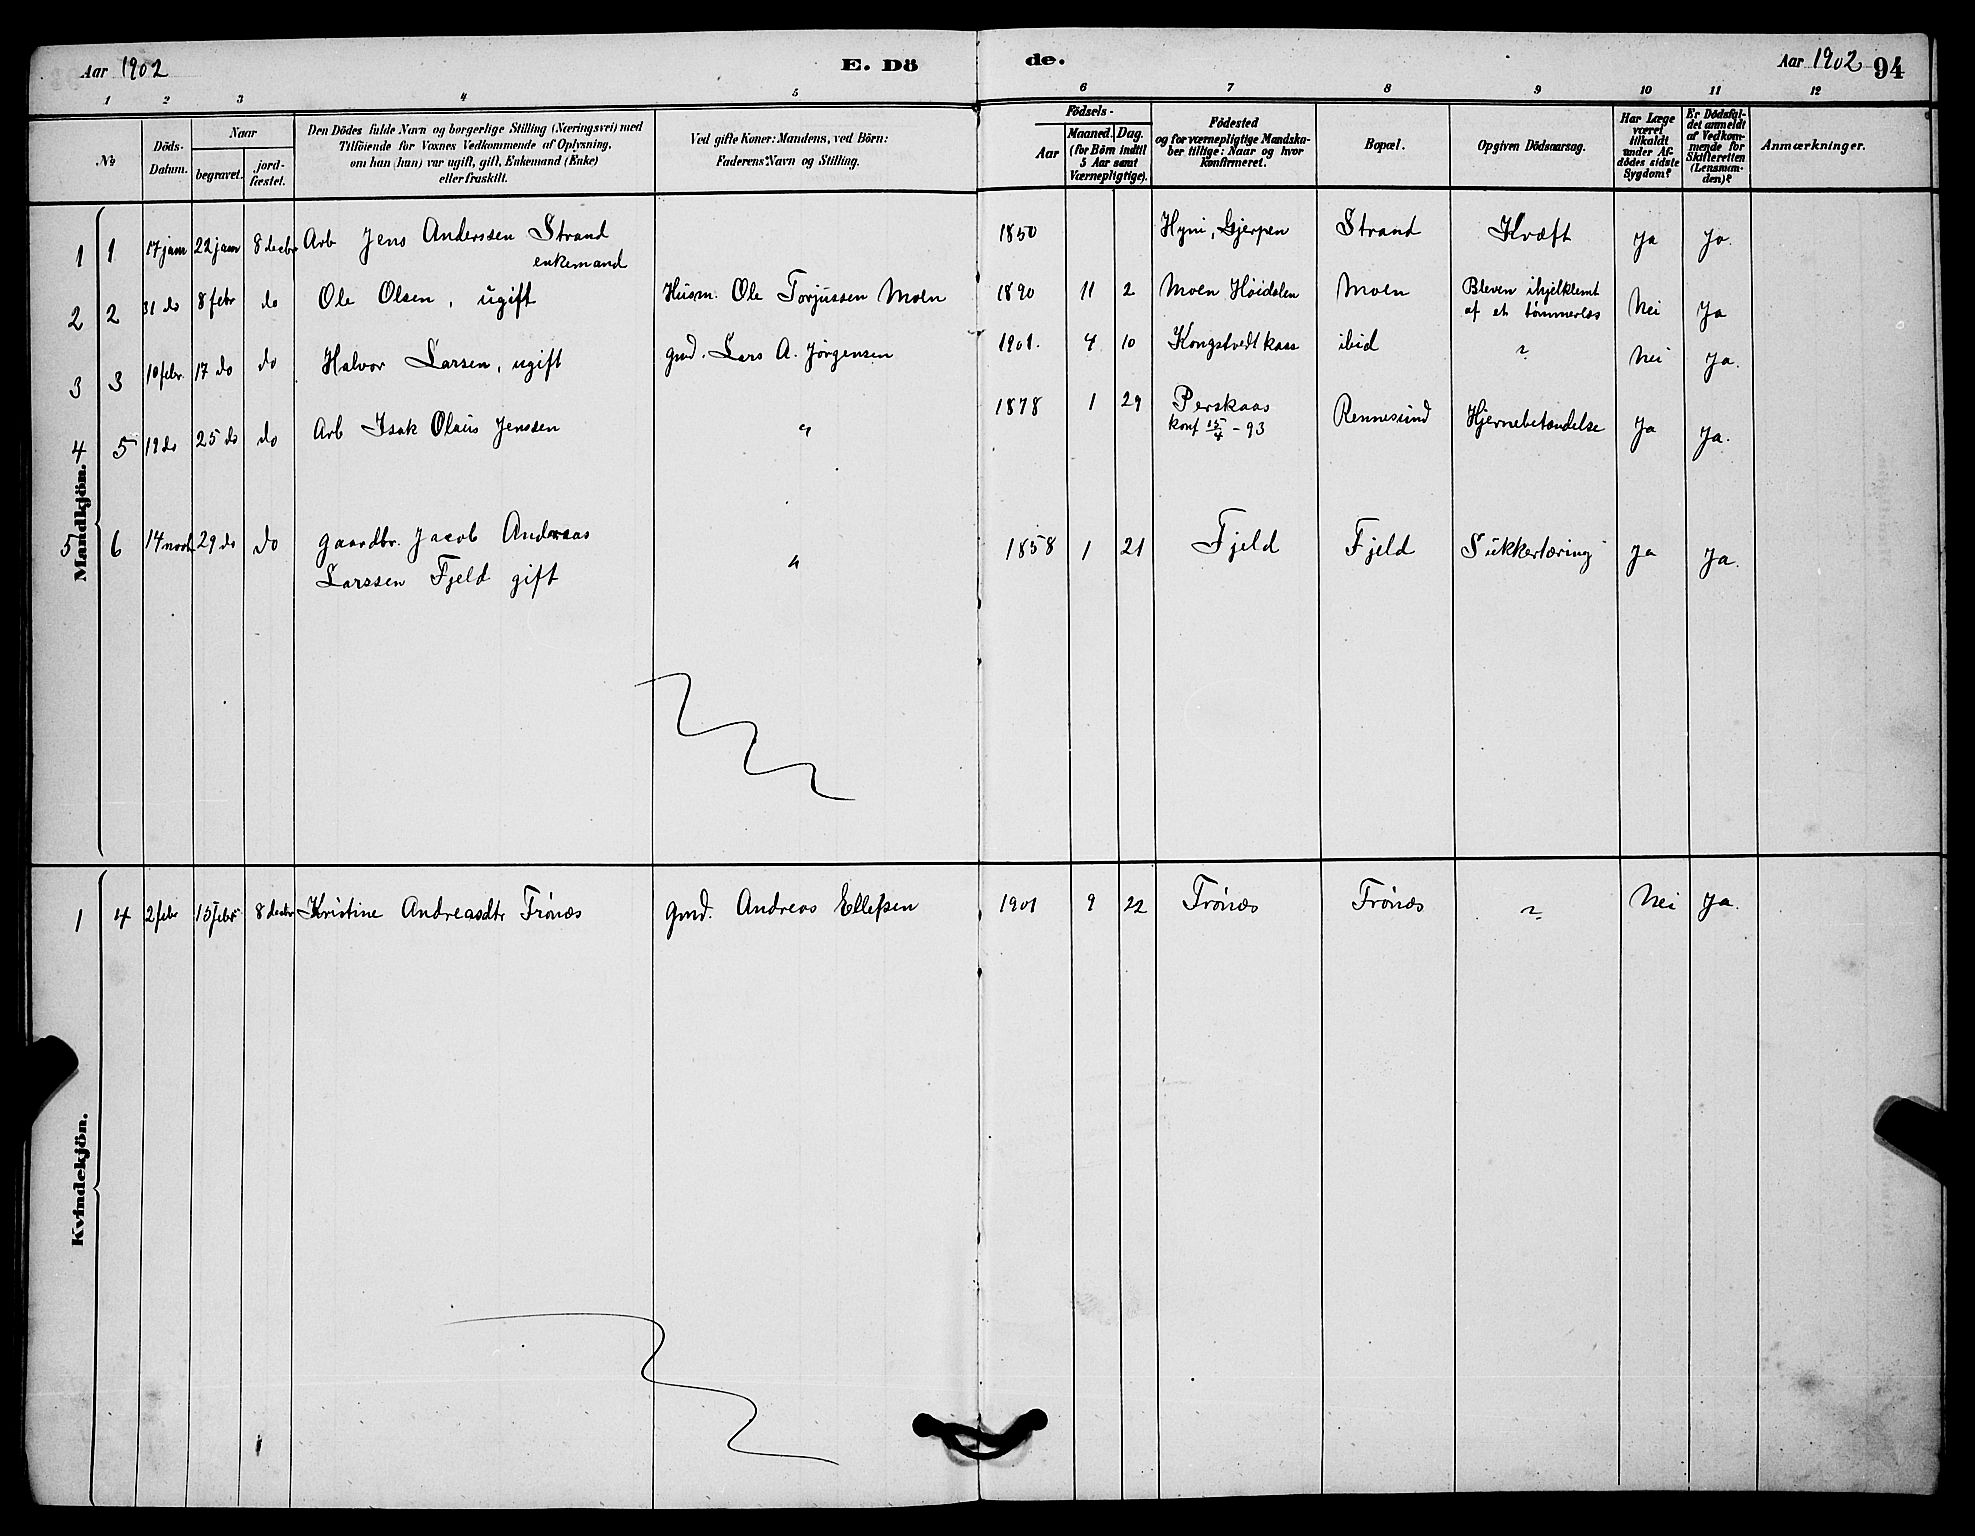 Aar 1902 E. Dö de. Aar 1902 94
1 2 3 4 5 6 7 8 9 10 11 12
№
Döds-
Datum.
Naar
begravet.
jord-
fæstet.
Den Dödes fulde Navn og borgerlige Stilling (Næringsvei) med
Tilföiende for Voxnes Vedkommende af Oplysning,
om han (hun) var ugift, gift, Enkemand (Enke)
eller fraskilt.
Ved gifte Koner: Mandens, ved Börn:
Faderens Navn og Stilling.
Födsels-
Aar
Maaned. Dag.
(for Børn indtil
5 Aar samt
Værnepligtige).
Födested
og for værnepligtige Mandska-
ber tillige: Naar og hvor
konfirmeret.
Bopæl.
Opgiven Dödsaarsag.
Har Læge
været
tilkaldt
under Af-
dödes sidste
Sygdom?
Er Dödsfal-
det anmeldt
af Vedkom-
mende for
Skifteretten
(Lensman-
den)?
Anmærkninger.
Mandkjön.
1 1 17 jan 22 jan 8 decbr Arb Jens Anderssen Strand 1850 Gjerpen Strand Kræft Ja Ja.
enkemand
2 2 31 do 8 febr do Ole Olsen, ugift Husm. Ole Torjussen Moen 1890 11 2 Moen Høidalen Moen Bleven ihjelklemt Nei Ja
af et tømmerlæs
3 3 10 febr. 17 do do Halvor Larsen, ugift gmd. Lars A. Jørgensen 1901. 4 10 Kongstvedtkaas ibid ? Nei Ja.
4 5 19 do 25 do do Arb Isak Olaus Jenssen " 1878 1 29 Perskaas Rennesund Hjernebetændelse Ja Ja.
konf 15/4 - 93
5 6 14 novb 29 do do gaardbr. Jacob Andreas " 1858 1 21 Fjeld Fjeld Sukkertæring Ja Ja.
Larssen Fjeld gift
Kvindekjön.
1 4 2 febr 15 febr 8 decbr Kristine Andreasdtr Frönæs gmd. Andreas Ellefsen 1901 9 22 Frönæs Frönæs ? Nei Ja.